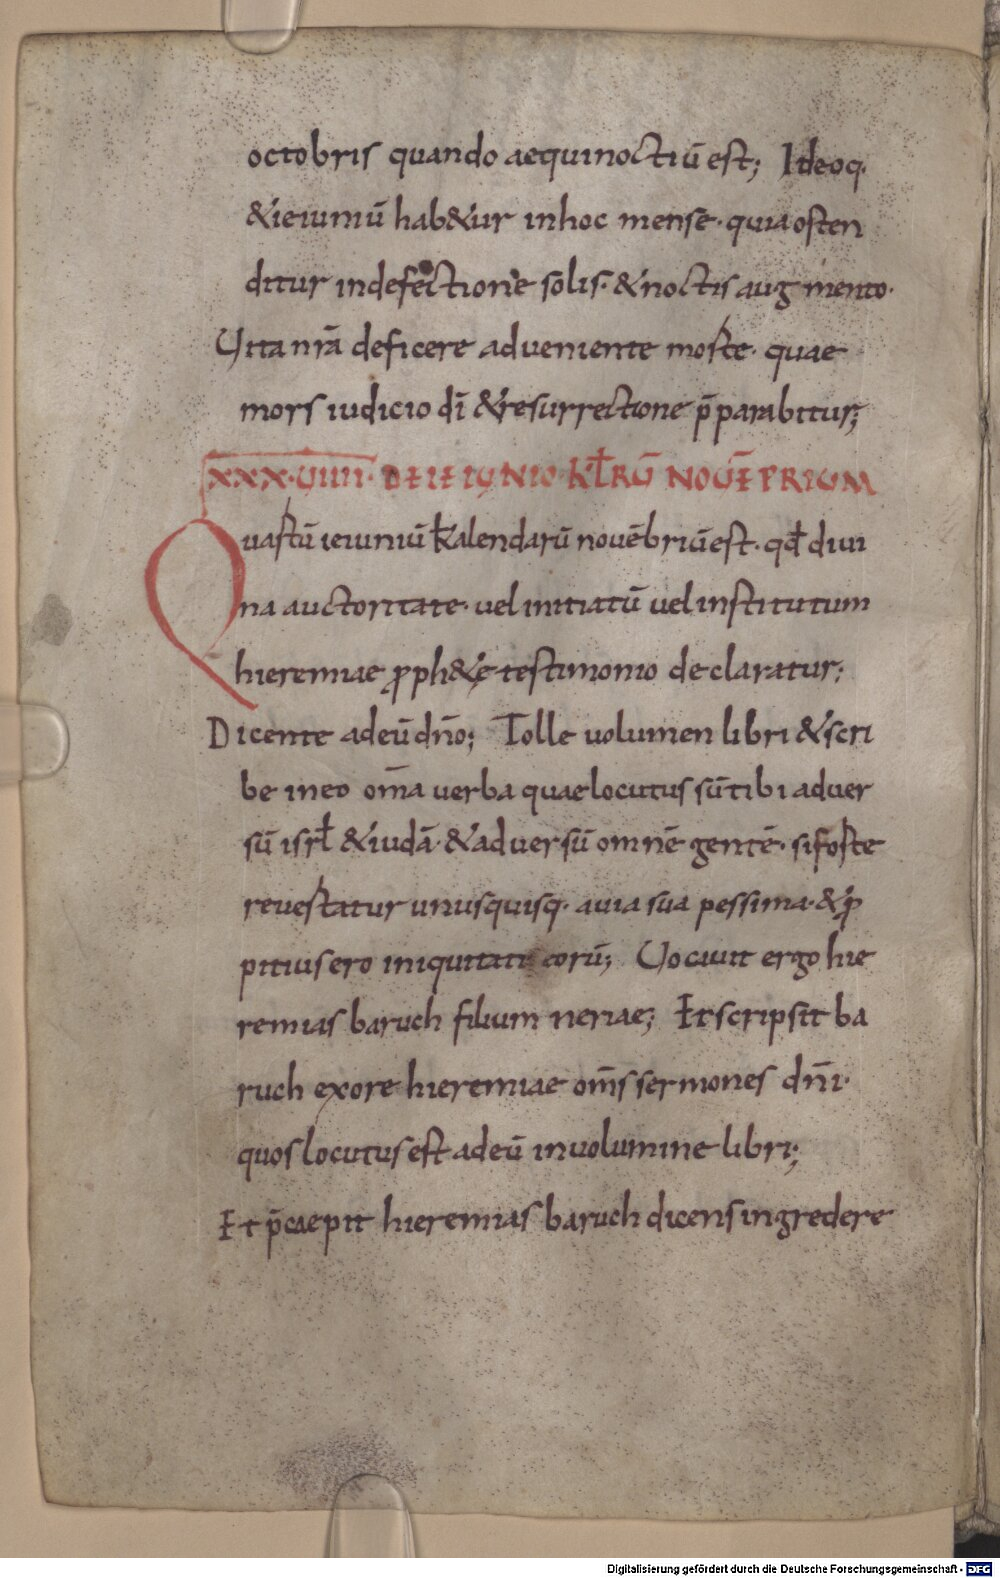 octobris quando aequinoctiū est; Ideoq·
& ieiuniū hab&ur in hoc mense· quia osten
ditur in defectione solis· & noctis augmento·
Uita nr̄a deficere adueniente morte· quae
mors iudicio dī & resurrectione p̄parabitur;
XXX·UIIII· DE IEIUNIO KL̄RŪ NOUĒPRIUM
Quartū ieiuniū kalendarū nouēbriū est· qd̄ diui
na auctoritate· uel initiatū uel institutum
hieremiae ꝓph&ę testimonio declaratur;
Dicente ad eū dn̄o; Tolle uolumen libri & scri
be in eo om̄a uerba quae locutus sū tibi aduer
sū isrl̄ & iudā· & aduersū omnē gentē· si forte
reuertatur unusquisq· a uia sua pessima· & ꝓ
pitius ero iniquitati eorū; Uocauit ergo hie
remias baruch filium neriae; Et scripsit ba
ruch ex ore hieremiae om̄s sermones dn̄i·
quos locutus est ad eū in uolumine libri;
Et p̄caepit hieremias baruch dicens ingredere
Digitalisierung gefördert durch die Deutsche Forschungsgemeinschaft - DFG